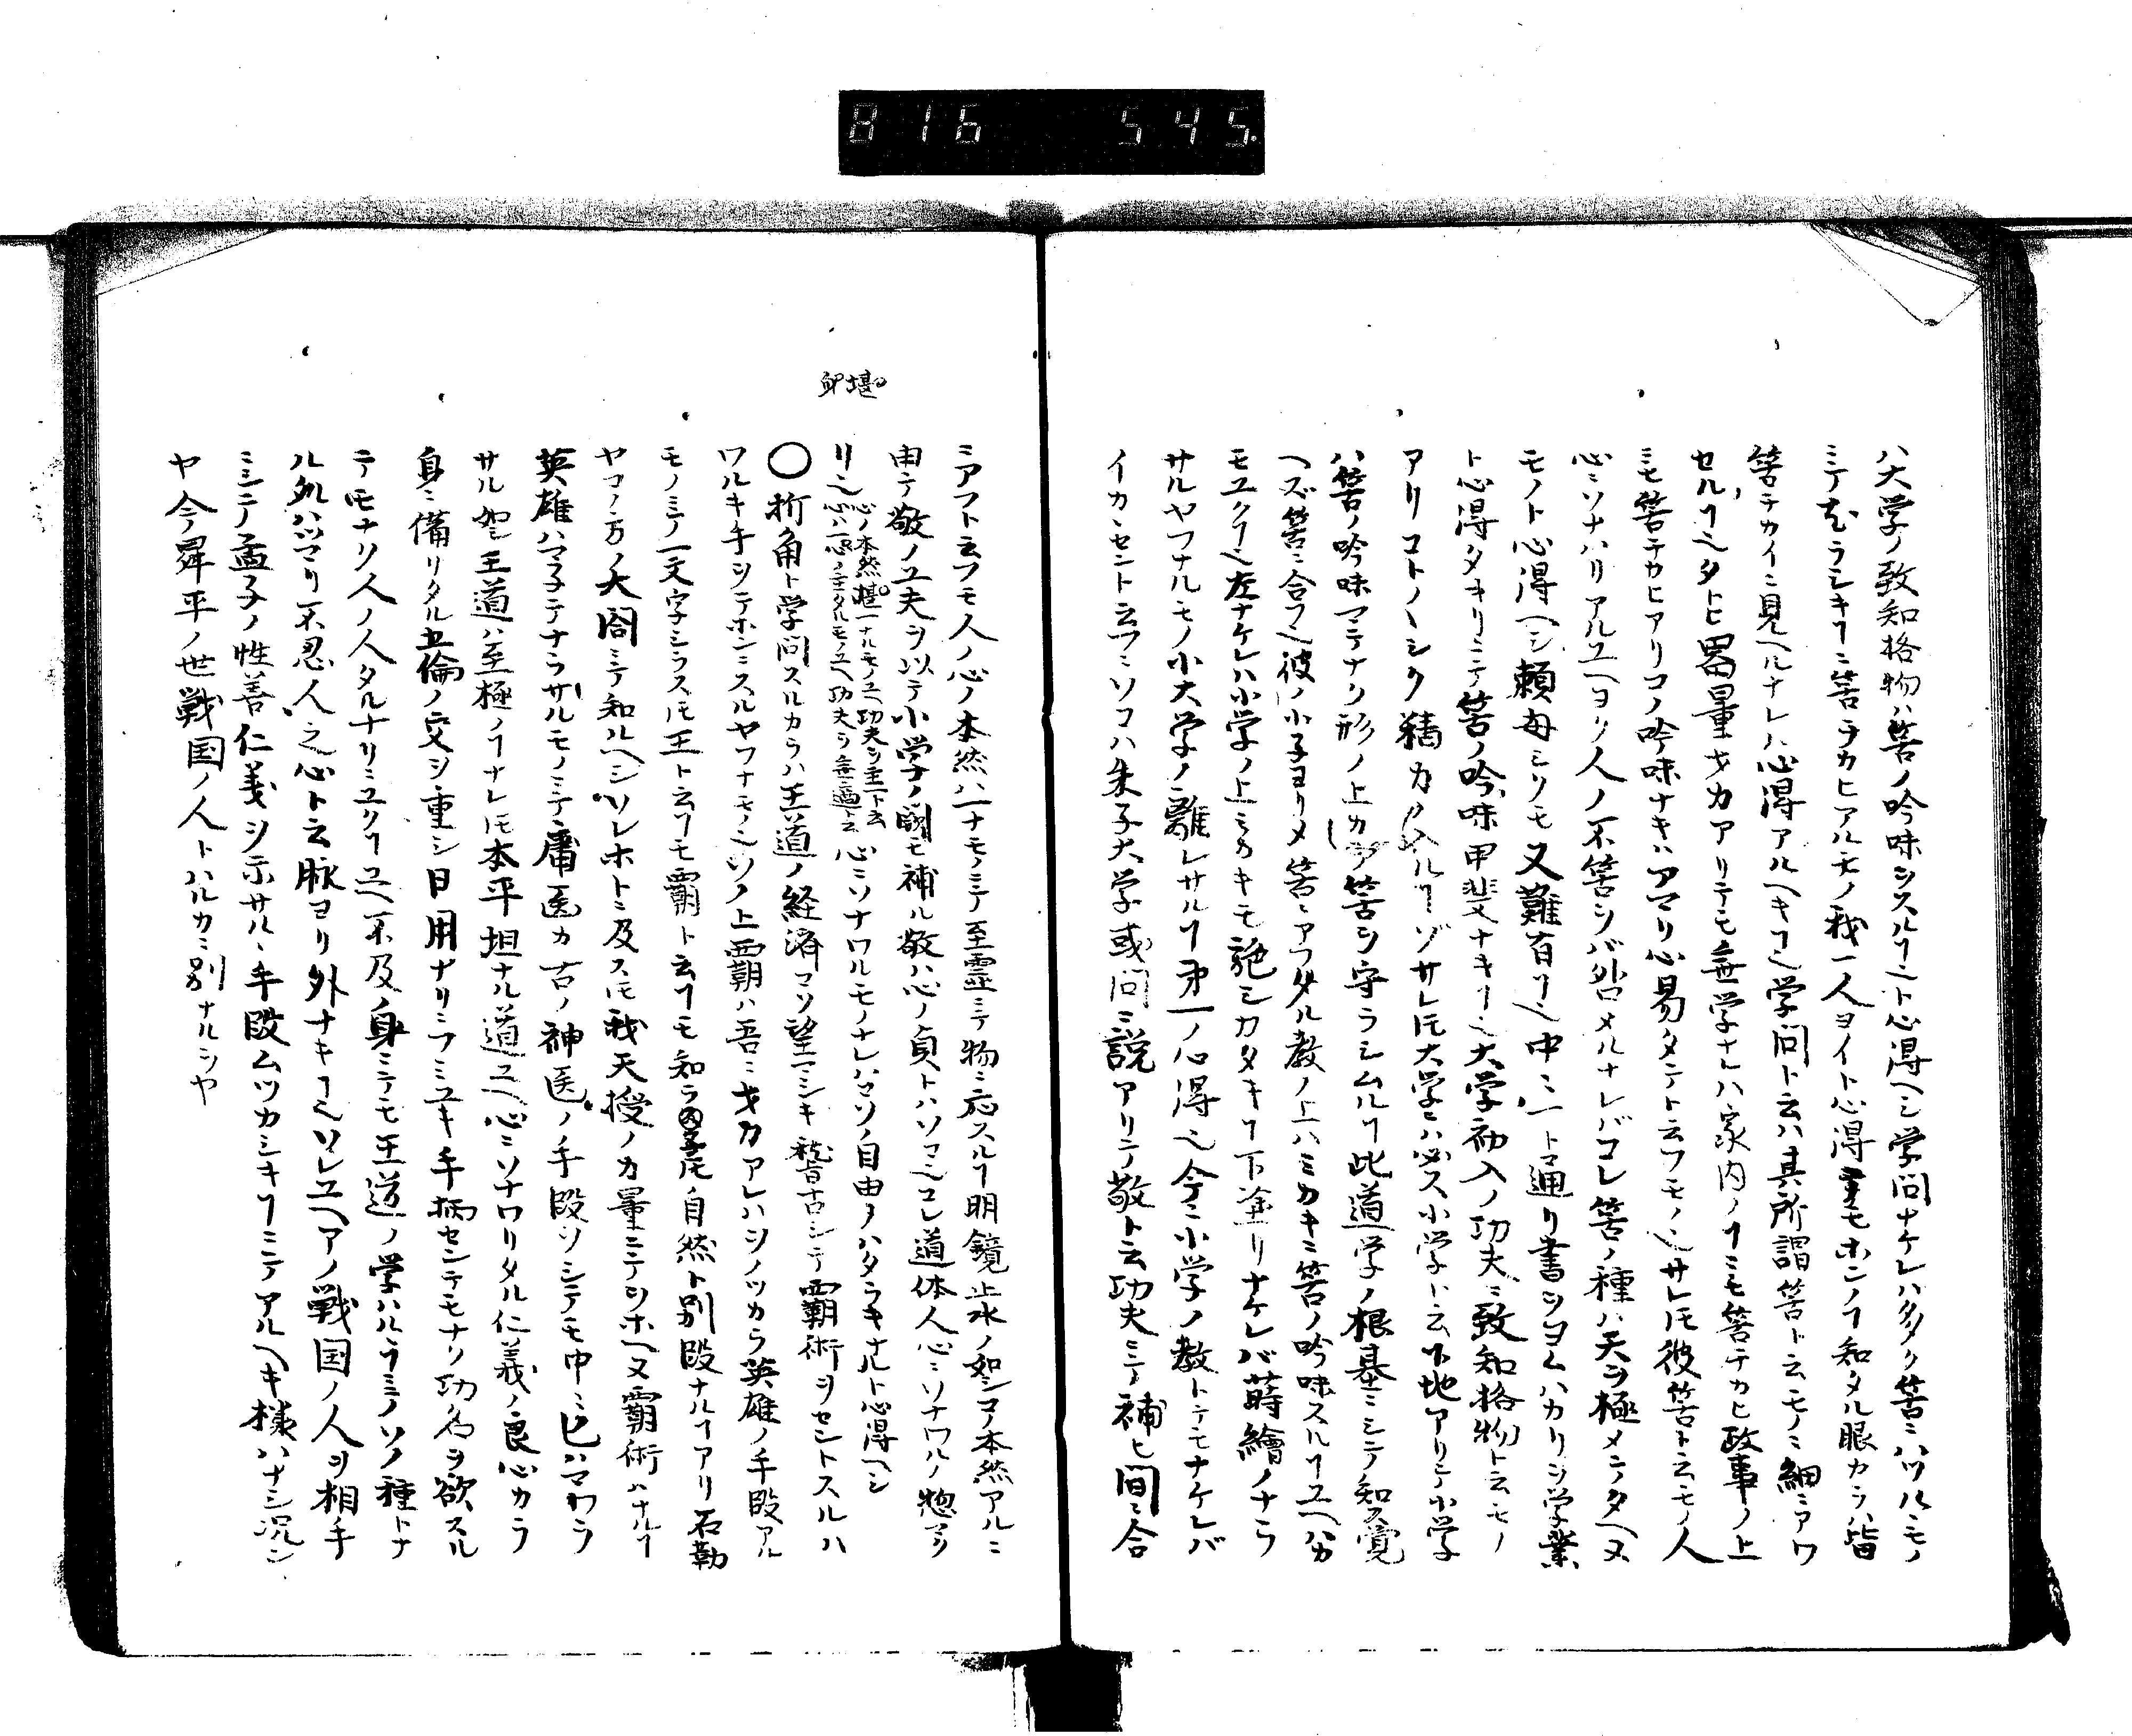 816 545
ハ大学ノ致知格物ハ筈ノ吟味ヲスルヿ也ト心得ヘシ学問ナケレハ多ク筈ニハツルヽモノ
ミテヲラシキヿニ筈チカヒアルモノ我一人ヨイト心得モホンノヿ知タル眼カラハ皆
筈チカイニ見ヘルナレハ心得アルヘキヿ也学問ト云ハ其所謂筈ト云モノニ細ニアワ
セルヿ也タトヒ器量才力アリテモ無学ナレハ家内ノヿニモ筈チカヒ政事ノ上
ニモ筈チカヒアリコノ吟味ナキハアマリ心易タテト云フモノ也サレ𪜈彼筈ト云モノ人
心ニソナハリアルユヘヨリ人ノ不筈ヲバ咎メルナレバコレ筈ノ種ハ天ヲ極メテタヘヌ
モノト心得ヘシ頼母シクモ又難有ヿ也中ニ一ト通リ書ヲヨムハカリヲ学業
ト心得タキリニテ筈ノ吟味甲斐ナキヿ也大学初入ノ功夫ニ致知格物ト云モノ
アリコト〳〵シク精力ノ入ルヿゾサレ𪜈大学ニハ必ス小学ト云下地アリテ小学
ハ筈ノ吟味マテナク形ノ上カラ筈ヲ守ラシムルヿ此道学ノ根基ニシテ知ス覚
ヘズ筈ニ合フ也彼ノ小子ヨリメ筈ニアフタル教ノ上ハミカキニ筈ノ吟味スルヿユヘハカ
モユクヿ也左ナケレハ小学ノ上ミカキモ施シカタキヿ下塗リナケレバ蒔繪ノナラ
サルヤフナルモノ小大学ノ離レサルヿ第一ノ心得也今ニ小学ノ教トテモナケレバ
イカヽセント云フニソコハ朱子大学或問ニ説アリテ敬ト云功夫ミテ補ヒ間ニ合
ミアフト云フモ人ノ心ノ本然ハ一ナモノミテ至霊ミテ物ニ応スルヿ明鏡止水ノ如シコノ本然アルニ
申テ敬ノ工夫ヲ以テ小学ノ闕モ補ル敬ハ心ノ貞トハソコ也コレ道体人心ニソナワルノ惣マク
リ也心ノ本然堪一ナルモノユヘ功夫ヲ主一ト云
心ハ一心ノ主タルモノユヘ功夫ヲ無適ト云心ニソナワルモノナレハコソノ自由ヲハタラキナルト心得ヘシ
○折角ト学問スルカラハ王道ノ経済コソ望マシキ稽古シテ覇術ヲセントスルハ
ワルキ手ヲテホンニスルヤフナモノ也ソノ上覇ハ吾ニ才力アレハヲノツカラ英雄ノ手段アル
モノミテ一文字シラス𪜈王ト云フモ覇ト云ヿモ知ラ〆𪜈自然ト別段ナルヿアリ石勒
ヤコノ方ノ大閤ミテ知ルヘシソレホトニ及ス𪜈我天授ノカ量ニテヲホヘ又覇術ハナルヿ
英雄ハマ子テナラザルモノミテ庸医カ古ノ神医ノ手段ヲシテモ中ニ匕ハマワラ
サル如シ王道ハ至極ノヿナレ𪜈本平坦ナル道ユヘ心ニソナワリタル仁義ノ良心カラ
身ニ備リタル五倫ノ交ヲ重シ日用ナリニフミユキ手柄センテモナク功名ヲ欲スル
テモナク人ノ人タルナリミユクヿユヘ不及ノ身ミテモ王道ノ学ハルヽミノソノ種トナ
ル処ハツマリ不忍人之心ト云脉ヨリ外ナキヿ也ソレユヘアノ戦国ノ人ヲ相手
ミシテ孟子ノ性善仁義ヲ示サルヽ手段ムツカシキヿミテアルヘキ様ハナシ况ン
ヤ今舜平ノ世戦国ノ人トハルカニ別ナルヲヤ